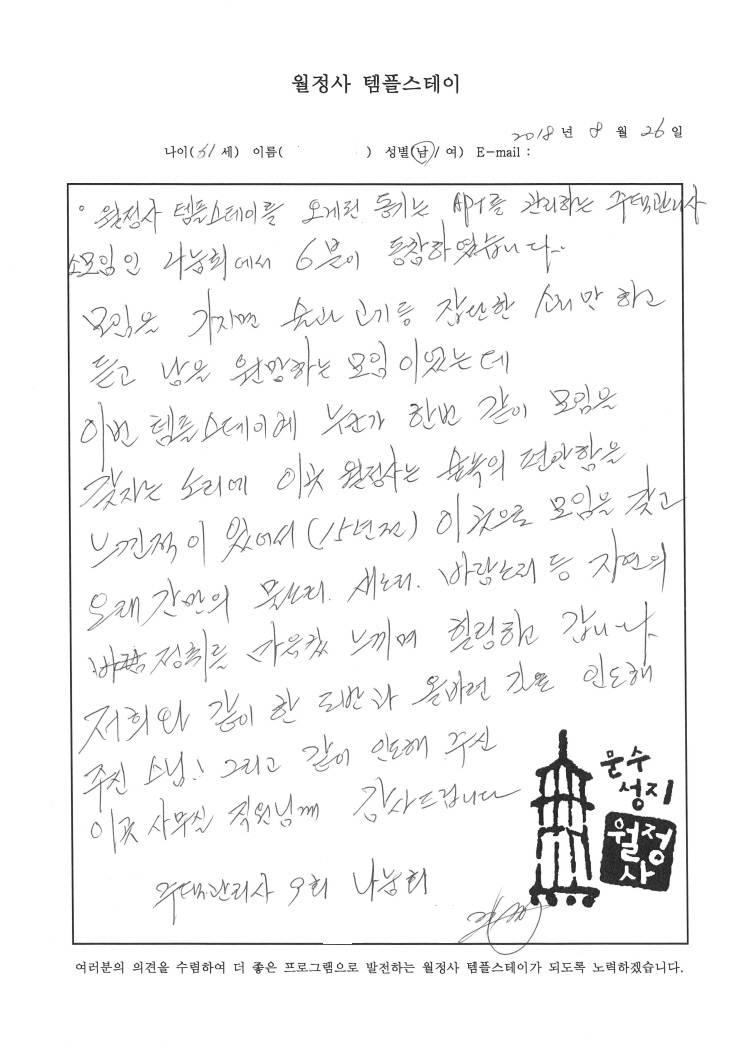 월정사 템플스테이
2018 년 8 월 26 일
나이( 61 세) 이름( ) 성별(남/ 여) E-mail :
° 월정사 템플스테이를 오게된 동기는 APT를 관리하는 주택관리사
소모임인 나눔회에서 6분이 동참하였습니다..
모임을 가지면 술과 고기등 잡단한 소리만 하고
듣고 남을 원망하는 모임이였는데
이번 템플스테이에 누군가 한번 같이 모임을
갖자는 소리에 이곳 월정사는 숲속의 편안함을
느낀적이 있어서 (15년전) 이곳으로 모임을 갖고
오래간만의 물소리. 새소리. 바람소리 등 자연의
정취를 가득 느끼며 힐링하고 갑니다.
저희와 같이 한 도반과 올바른 길로 인도해
주신 스님! 그리고 같이 인도해 주신
이곳 사무실 직원님께 감사드립니다
주택관리사 9회 나눔회
문수
성지
월정
사
여러분의 의견을 수렴하여 더 좋은 프로그램으로 발전하는 월정사 템플스테이가 되도록 노력하겠습니다.